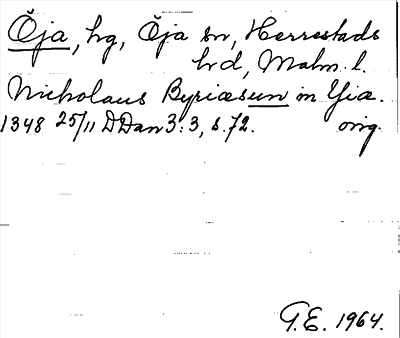 Öja, hg, Öja sn, Herrestads
hrd, Malm. l.
Nicholaus Byriæsun in Yia.
1348 25/11 DDan 3:3, s. 72. orig.
G.E. 1964.